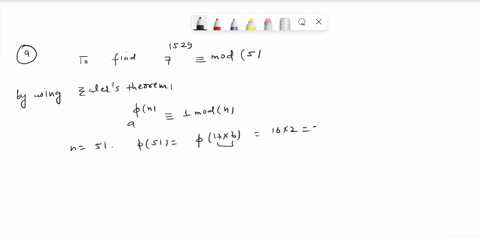 9 To find 7^1529 ≡ mod (51
by using Euler's theorem,
a^ϕ(n) ≡ 1 mod(n)
n = 51. ϕ(51) = ϕ(17×3) = 16×2 = -